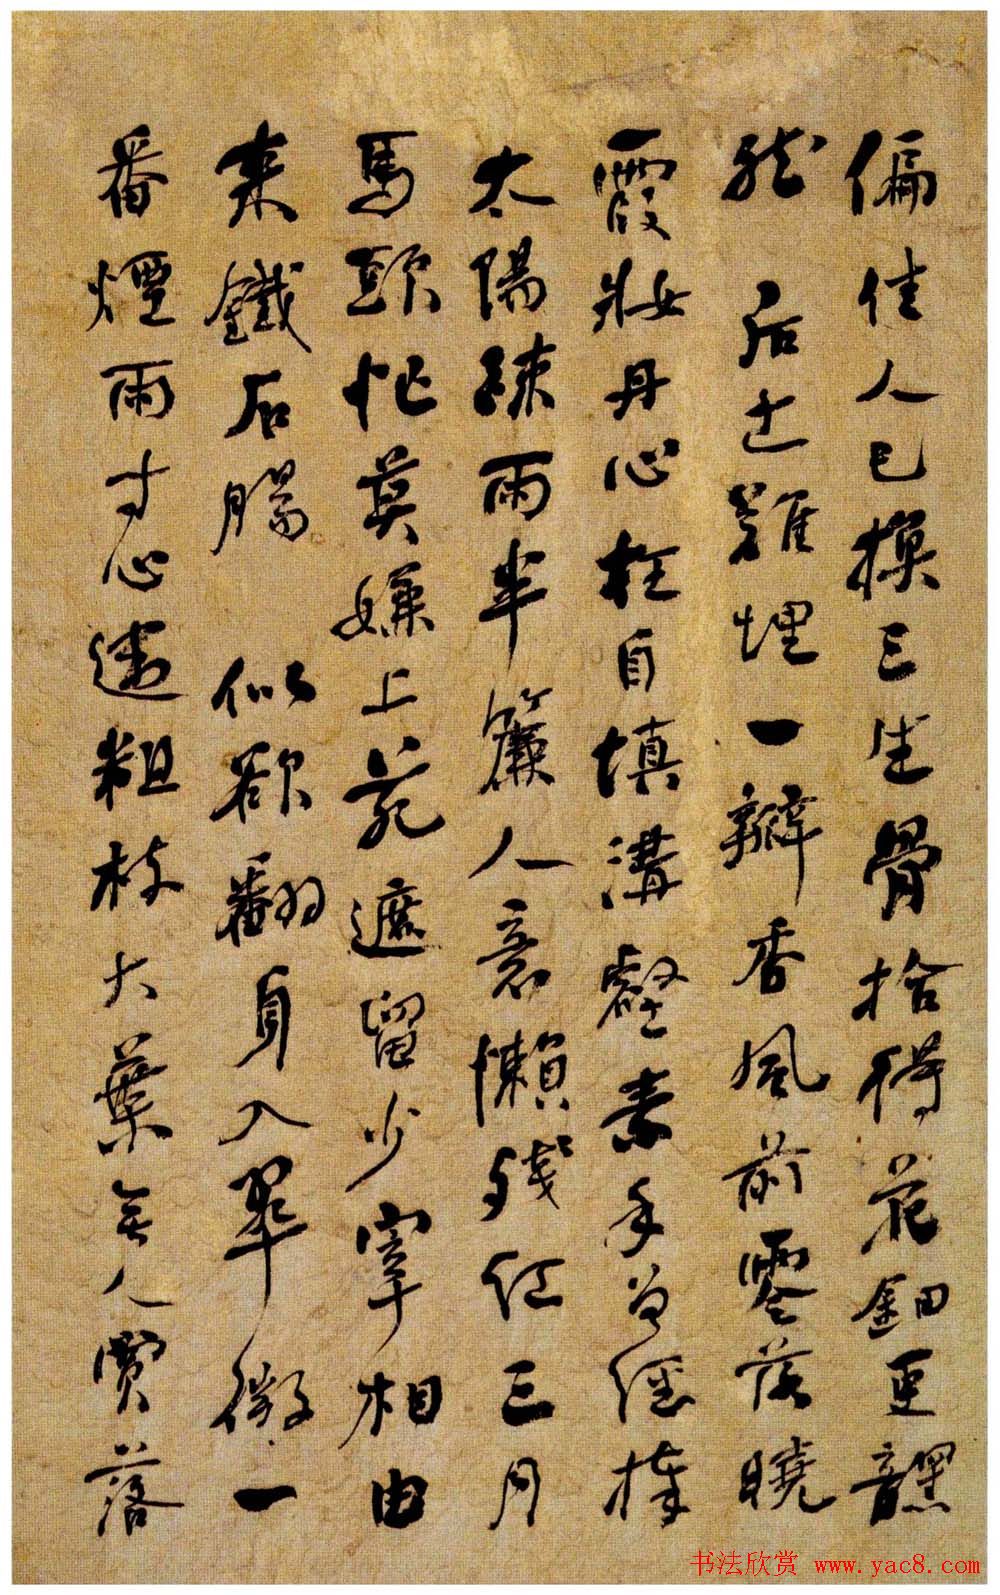 偏佳人已換三生骨拾得花鈿更黯
然 后土難埋一瓣香風前零落曉
霞妝丹心枉自填溝壑素手曾經捧
太陽疎雨半簾人意懶殘紅三月
馬頭忙莫嫌上苑遮留少宰相由
來鐵石腸 似欲翻身入翠微一
番煙雨寸心違粗枝大葉無人買落
书法欣赏 www.yac8.com